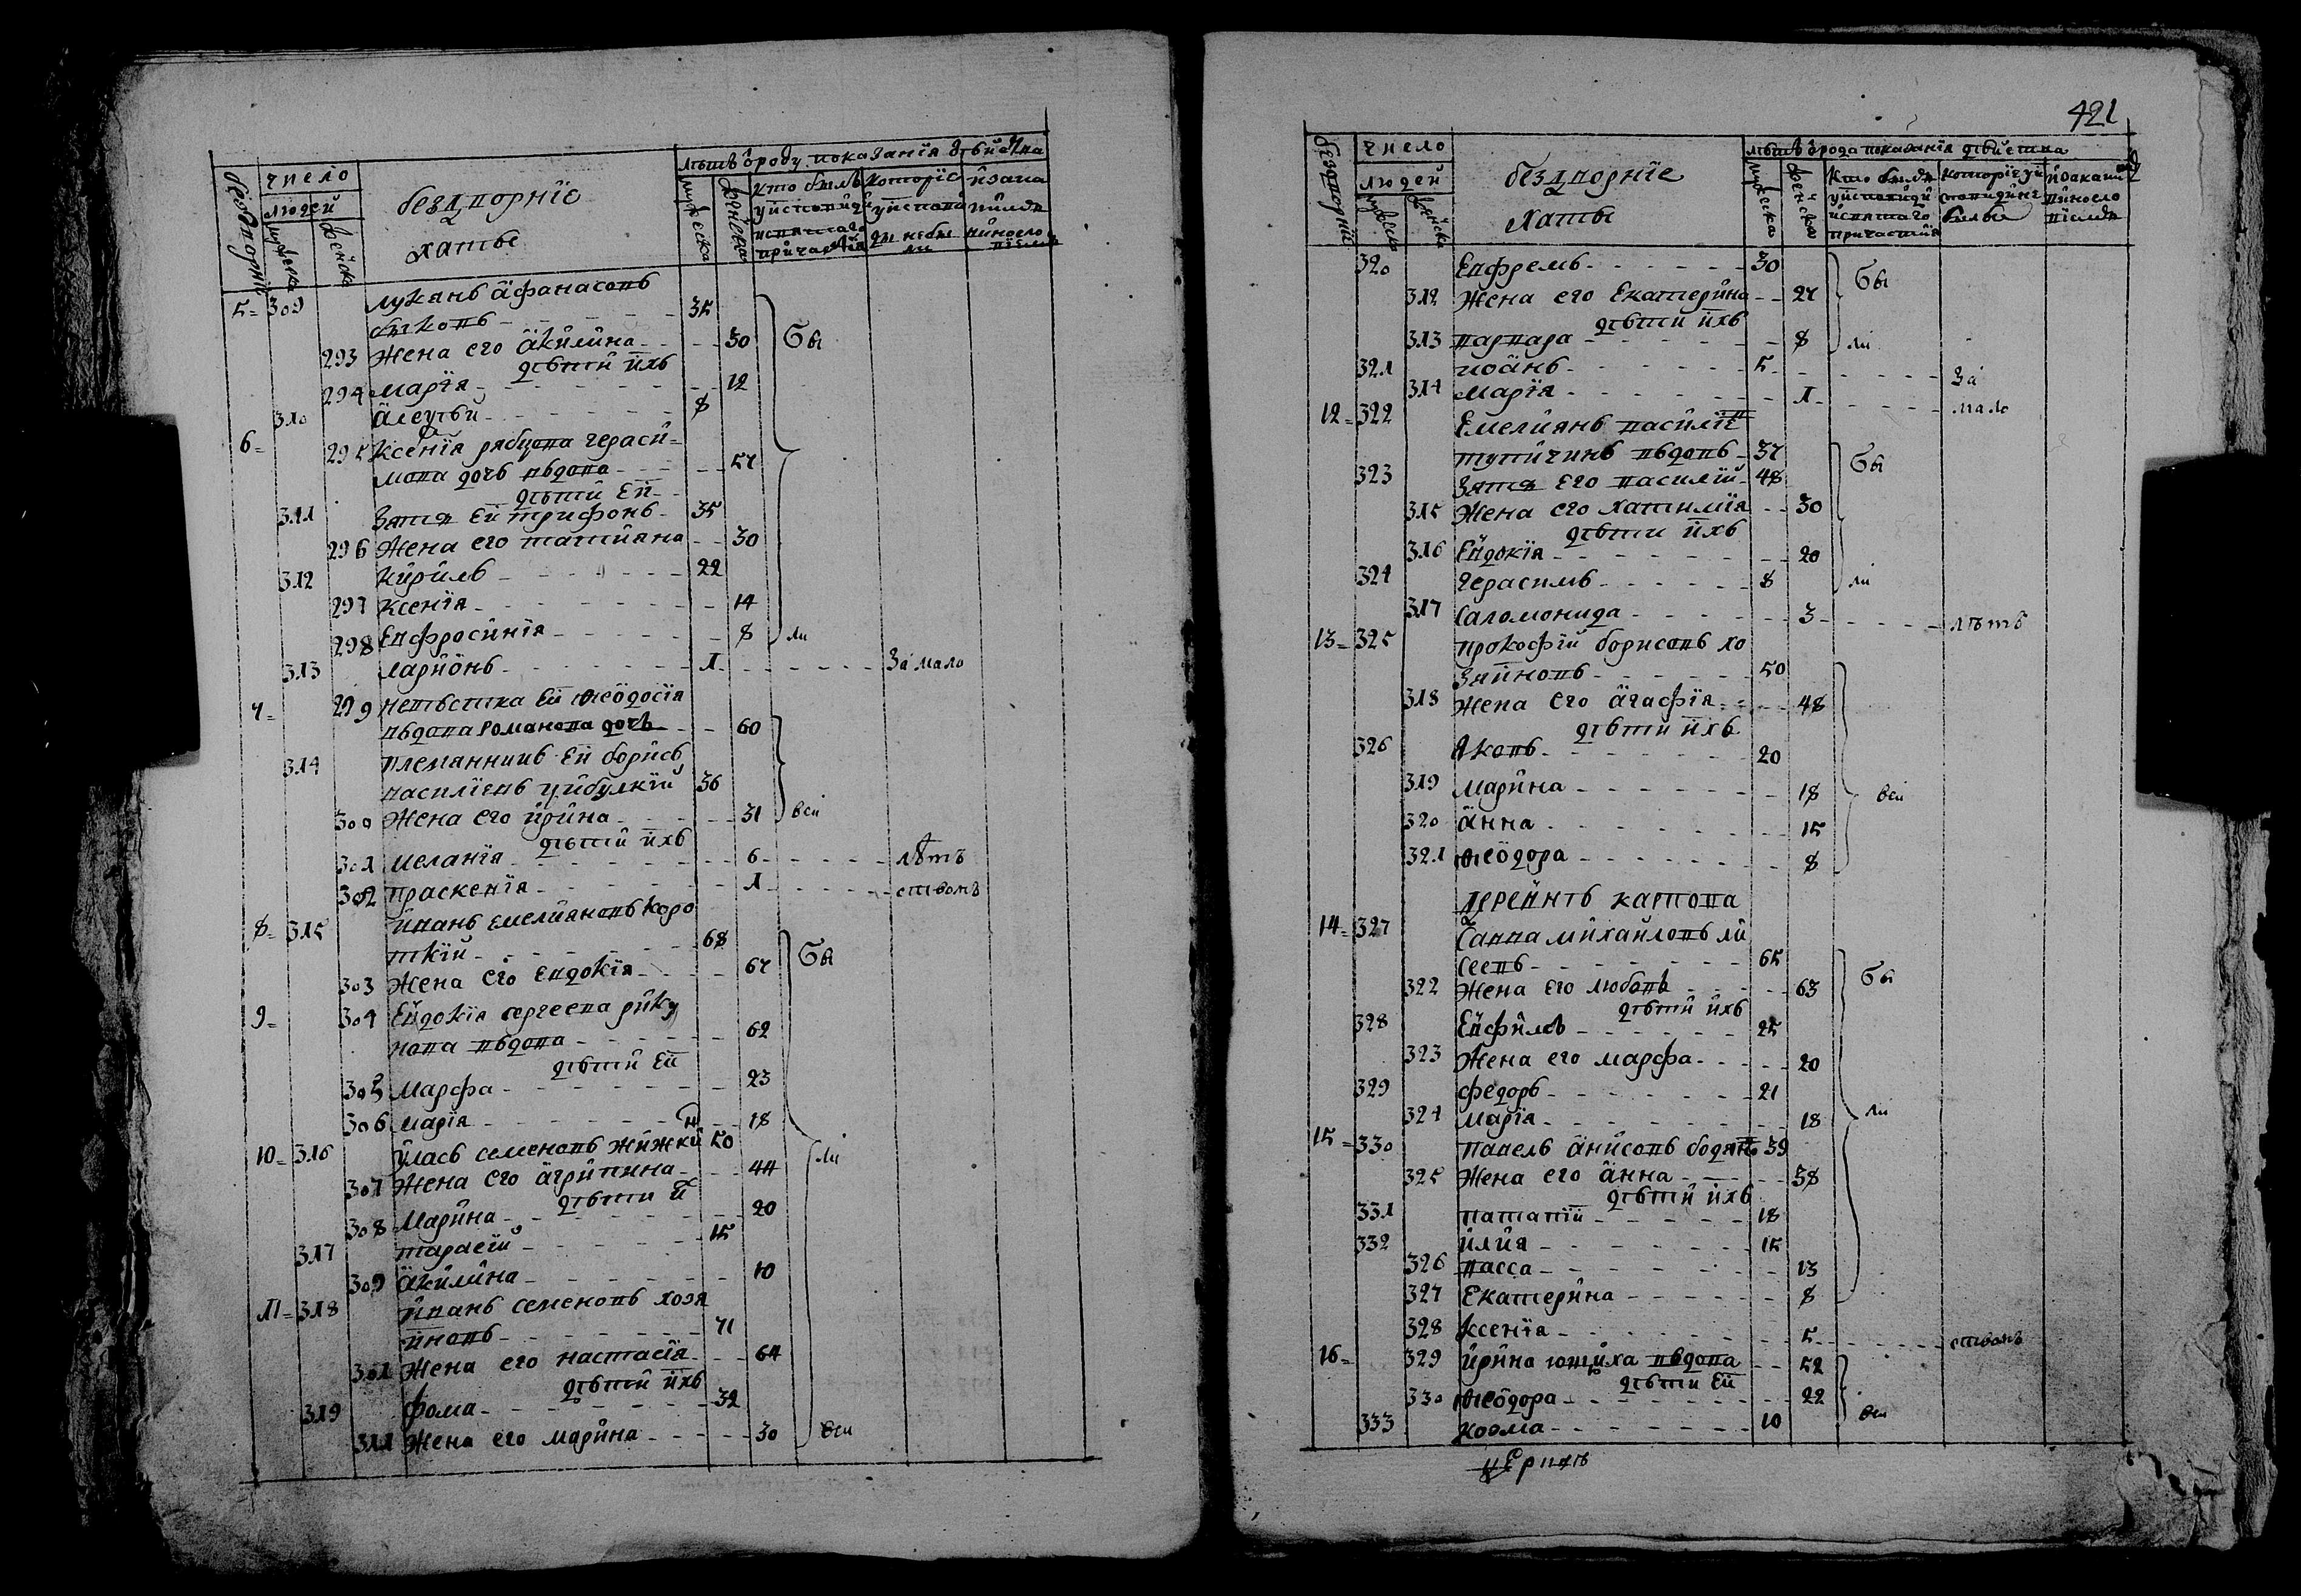 бездворніе
число
людей
мужеска
женска
бездворніе
хаты
мужеска
женска
5 = 309 Луканъ Афанасовъ
Быковъ 35
293 Жена его Акилина 30 Бы
дѣти ихъ
294 Марія 12
310 Алеѯѣй 8
6 = 295 Ксенія Герасй=
мова дочь вдова 57
дѣти ей
311 Зятъ ей Трифонъ 35
296 Жена его Татияна 30
312 Кирилъ 22
297 Ксенія 14
298 Евфросинія 8 ли
313 Ларионъ 1 За мало
7 = 299 Невѣстка ей Ѳеодосія
вдова Романова дочъ 60
314 Племянникъ ей Борисъ
Василіевъ Цибулкій 36
300 Жена его Ирина 31 вси
дѣти ихъ
301 Меланія 6 лѣтъ
302 Праскевія 1 ством
8 = 315 Иванъ Емелияновъ Коро
ткій 68
303 Жена его Евдокія 67 Бы
9 = 304 Евдокія Сергеева
нова вдова 62
дѣти ей
305 Марфа 23
306 Марія 18
10 = 316 Уласъ Семеновъ Жижкй 50 ли
307 Жена его Агрипина 44
дѣти й
308 Марина 20
317 Тарасій 15
309 Акилина 10
11 = 318 Иванъ Семеновъ Хозя
иновъ 71
301 Жена его Настасія 64
дѣти ихъ
319 Фома 32
311 Жена его Марина 30 вси
421
бездворніе
число
людей
мужеска
женска
бездворніе
хаты
мужеска
женска
320 Евфремъ 30
312 Жена его Екатерина 27 Бы
дѣти ихъ
313 Варвара 8 ли
321 Иоанъ 5 За
314 Марія 1 мало
12 = 322 Емелиянъ Василіе
Тупичинъ вдовъ 37
323 Зятъ его Василій 48 Бы
315 Жена его Хатимія 30
дѣти ихъ
316 Евдокія 20
324 Герасимъ 8 ли
317 Саломонида 3 лѣтъ
13 = 325 Прокофій Борисовъ Хо
зяиновъ 50
318 Жена его Агафія 48
дѣти ихъ
326 Яковъ 20
319 Марина 18 вси
320 Анна 15
321 Ѳеодора 8
14 = 327 Савва Михайловъ Ли
сеевъ 65
322 Жена его Любовъ 63 Бы
дѣти ихъ
328 Евфимъ 25
323 Жена его Марфа 20
329 Федоръ 21
324 Марія 18 ли
15 = 330 Павелъ Анисовъ 39
325 Жена его Анна 38
дѣти ихъ
331 Патапій 18
332 Илия 15
326 Васса 13
327 Екатерина 8
328 Ксенія 5 ствомъ
16 = 329 Ирина вдова 52
дѣти ей
330 Ѳеодора 22 вси
333 Козма 10